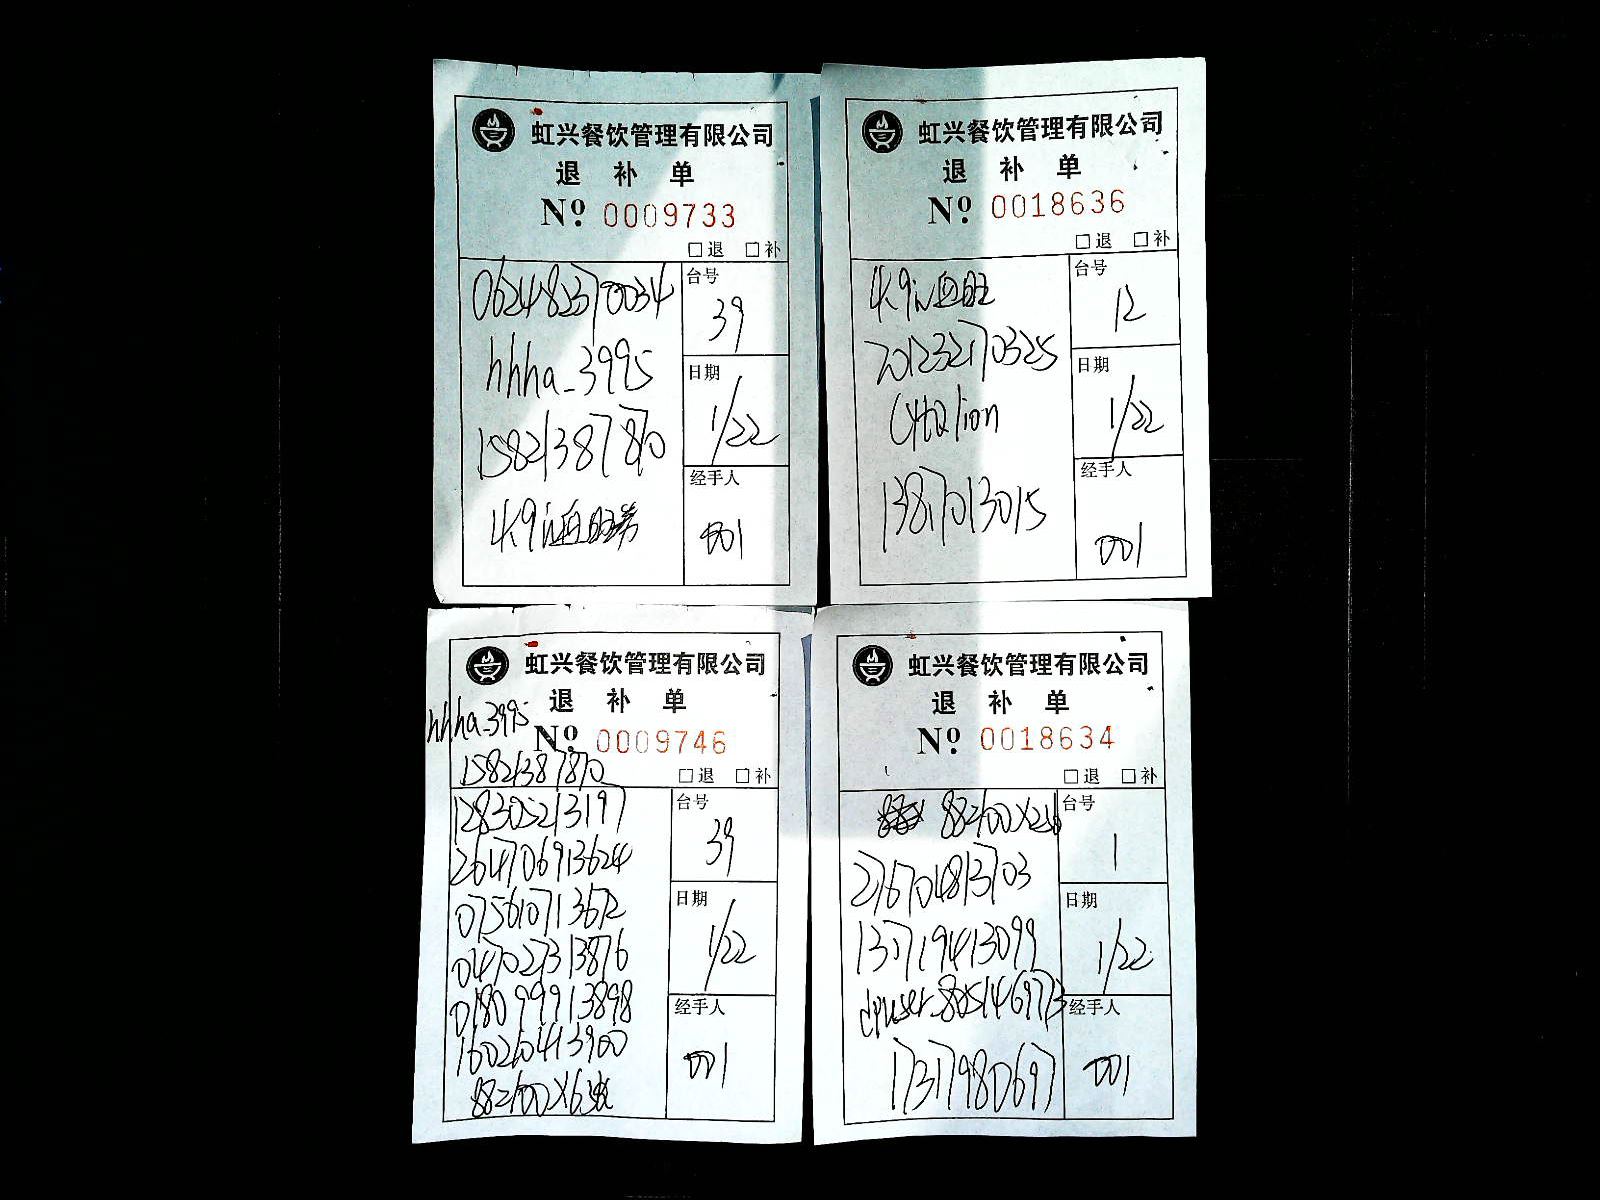 虹兴餐饮管理有限公司
退 补 单
Nº 0009733
□退 □补
062482370034
hhha_3995
15821387870
台号
39
日期
1/22
经手人
001
虹兴餐饮管理有限公司
退 补 单
Nº 0018636
□退 □补
4.9元血旺
201232170325
lion
13817013015
台号
12
日期
1/22
经手人
001
虹兴餐饮管理有限公司
退 补 单
hhha_3995
Nº 0009746
15821387870
□退 □补
128305213197
264706913624
075610713672
047027313876
018099913898
160260413900
882100X6
台号
39
日期
1/22
经手人
001
虹兴餐饮管理有限公司
退 补 单
Nº 0018634
□退 □补
882100X2
276704813703
131719413099
dpuser_8051469773
17317980697
台号
1
日期
1/22
经手人
001